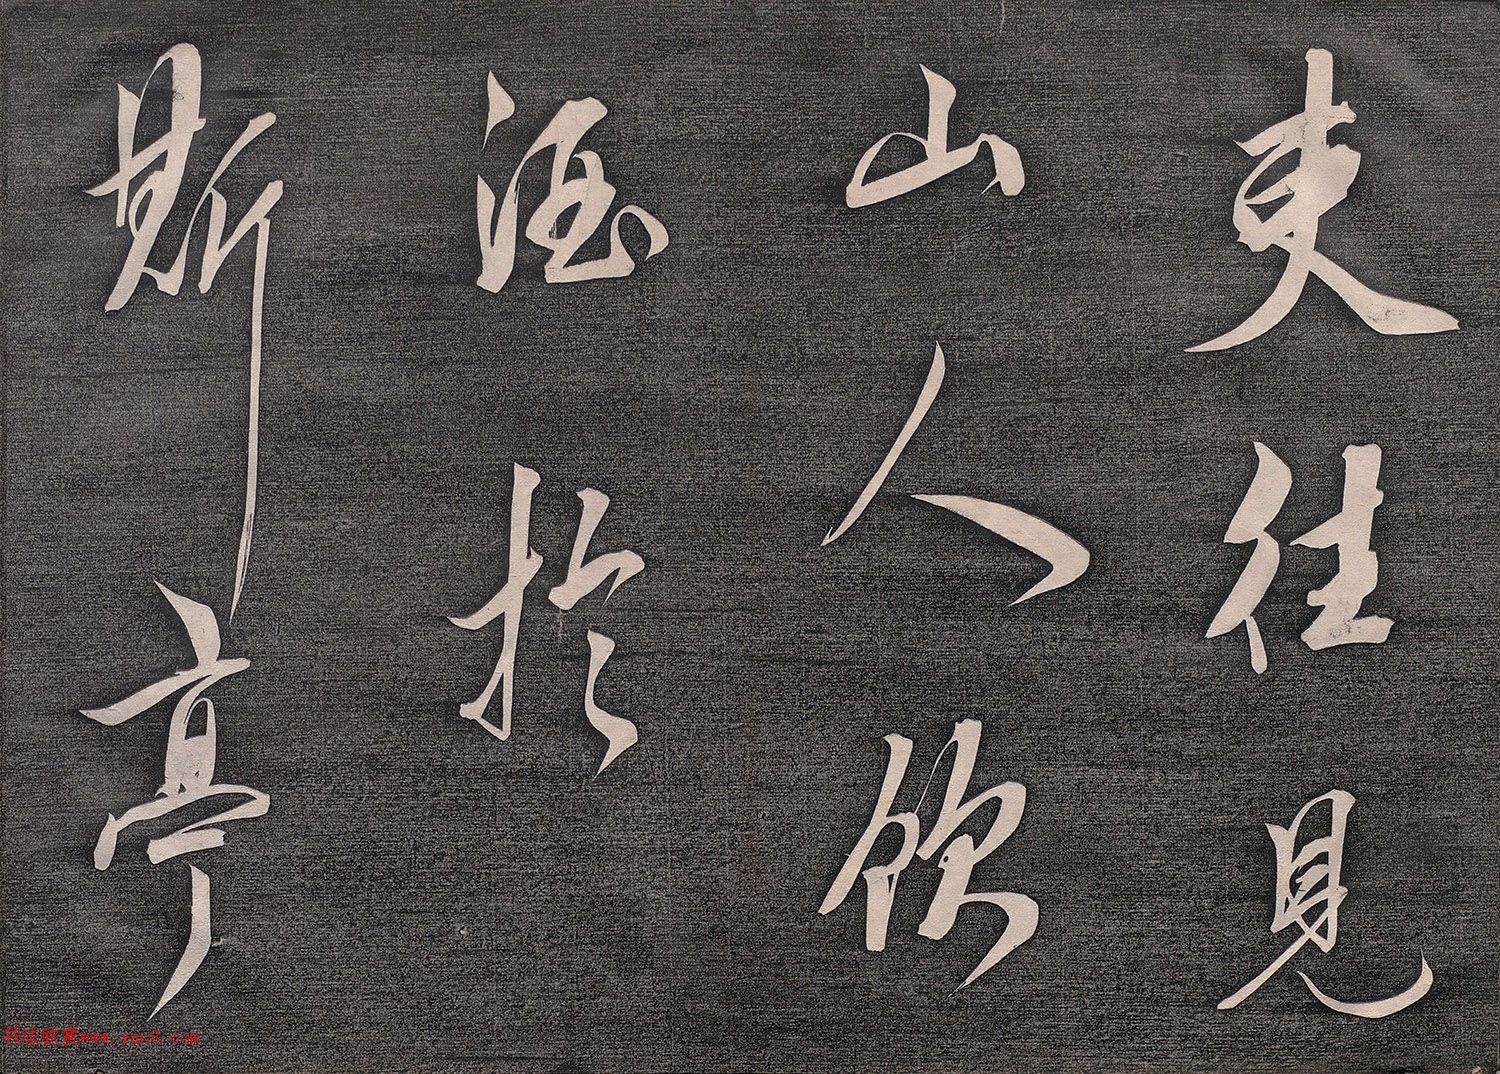 吏往見
山人飲
酒於
斯亭
书法欣赏www.yac8.com